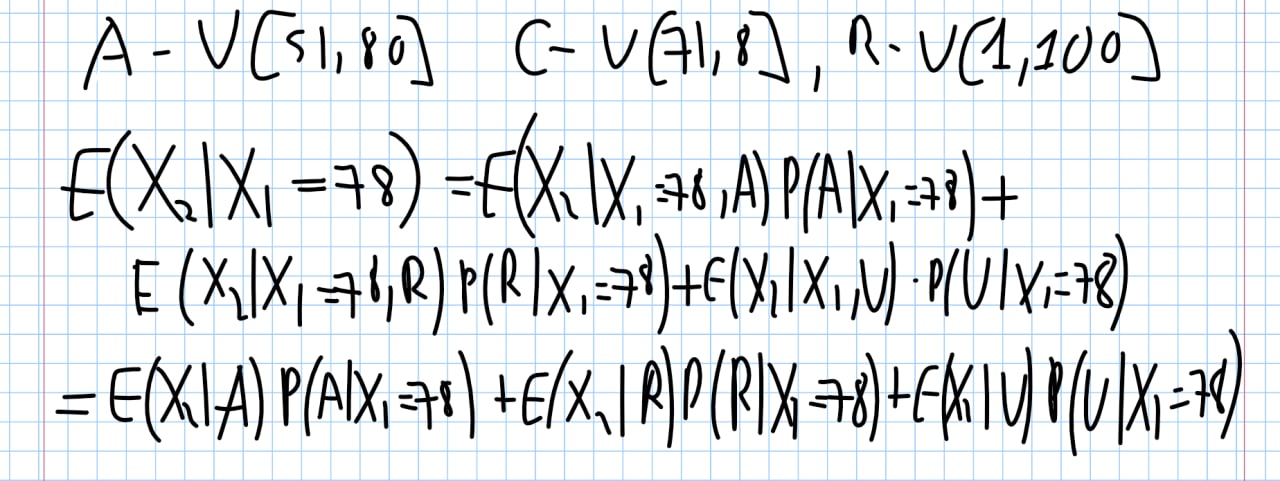 A - U[51,80] C - U[71,8], R - U(1,100]
E(X₂|X₁ = 78) = E(X₂|X₁ = 78, A) P(A|X₁ = 78) +
E(X₂|X₁ = 78, R) P(R|X₁ = 78) + E(X₂|X₁, U) · P(U|X₁ = 78)
= E(X₂|A) P(A|X₁ = 78) + E(X₂|R) P(R|X₁ = 78) + E(X₂|U) P(U|X₁ = 78)